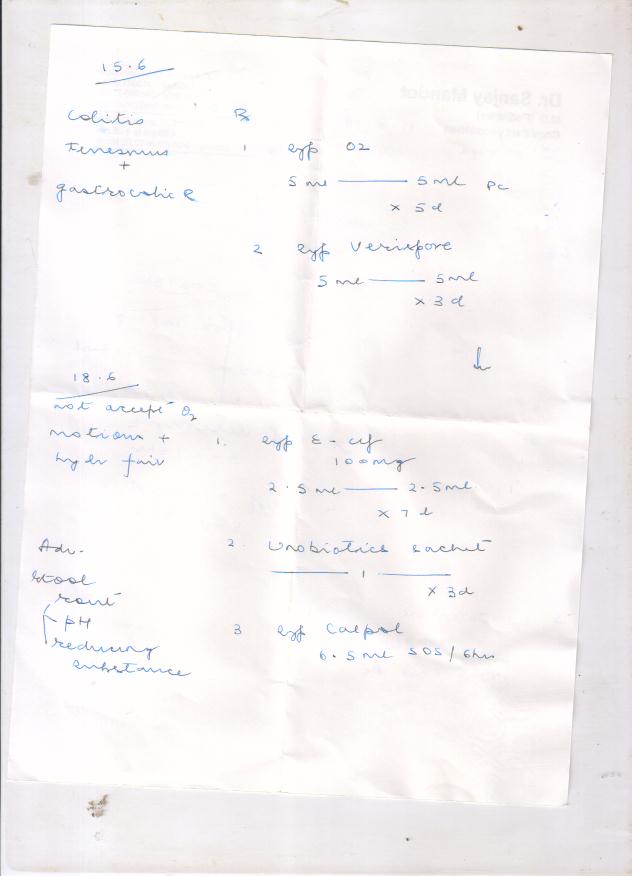 15.6
Colitis
Tenesmus
+
gastrocolic R
Rx
1 syp O2
5 ml —— 5 ml pc
x 5 d
2 syp Verispore
5 ml —— 5 ml
x 3 d
18.6
not accept O2
motions +
1. syp
100mg
2.5 ml —— 2.5 ml
x 7 d
Adv.
stool
rout
pH
reducing
substance
2. sachet
—— 1 ——
x 3 d
3 syp Calpol
6.5 ml SOS / 6hrs